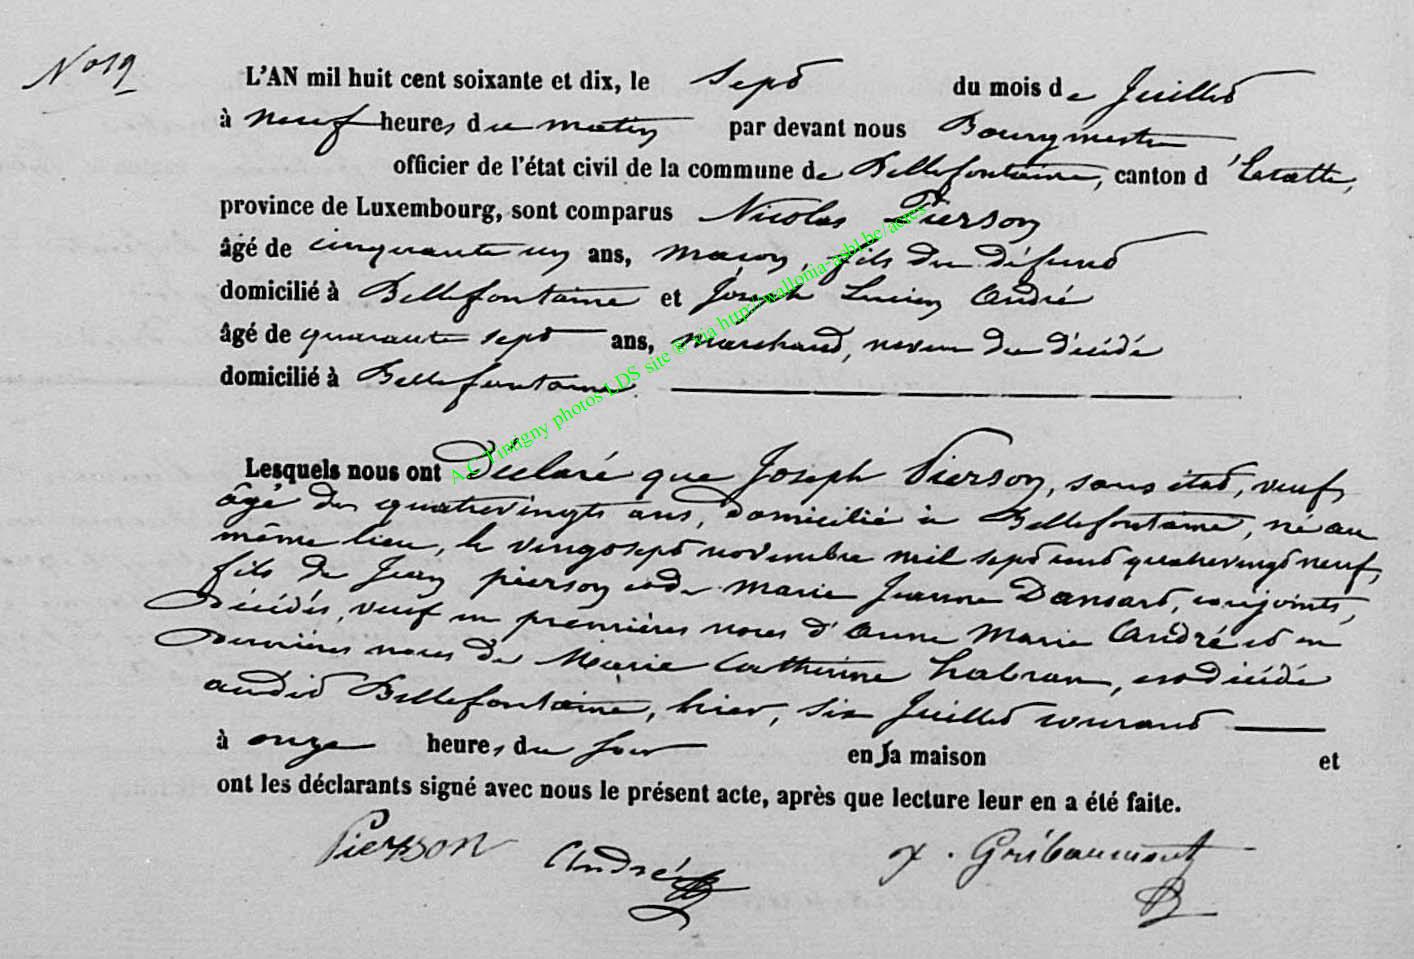 No 19
L'AN mil huit cent soixante et dix, le sept du mois de Juillet
à neuf heures du matin par devant nous Bourgmestre
officier de l'état civil de la commune de Bellefontaine, canton d'Etalle,
province de Luxembourg, sont comparus Nicolas Pierson
âgé de cinquante un ans, maçon, fils du défunt
domicilié à Bellefontaine et Joseph Lucien André
âgé de quarante sept ans, marchand, neveu du décédé
domicilié à Bellefontaine.
Lesquels nous ont Déclaré que Joseph Pierson, sans état, veuf,
âgé de quatrevingts ans, domicilié à Bellefontaine, né au
même lieu, le vingt sept novembre mil sept cent quatrevingt neuf,
fils de Jean pierson et de marie Jeanne Dansart, conjoints,
Décédés, veuf en premières noces d'anne Marie André et en
Dernières noces de Marie Catherine habran, est décédé
audit Bellefontaine, hier, six Juillet courant
à onze heures du soir en sa maison et
ont les déclarants signé avec nous le présent acte, après que lecture leur en a été faite.
Pierson André Gribaumont
A.C Tintigny photos LDS site © via http://wallonia-asbl.be/actes